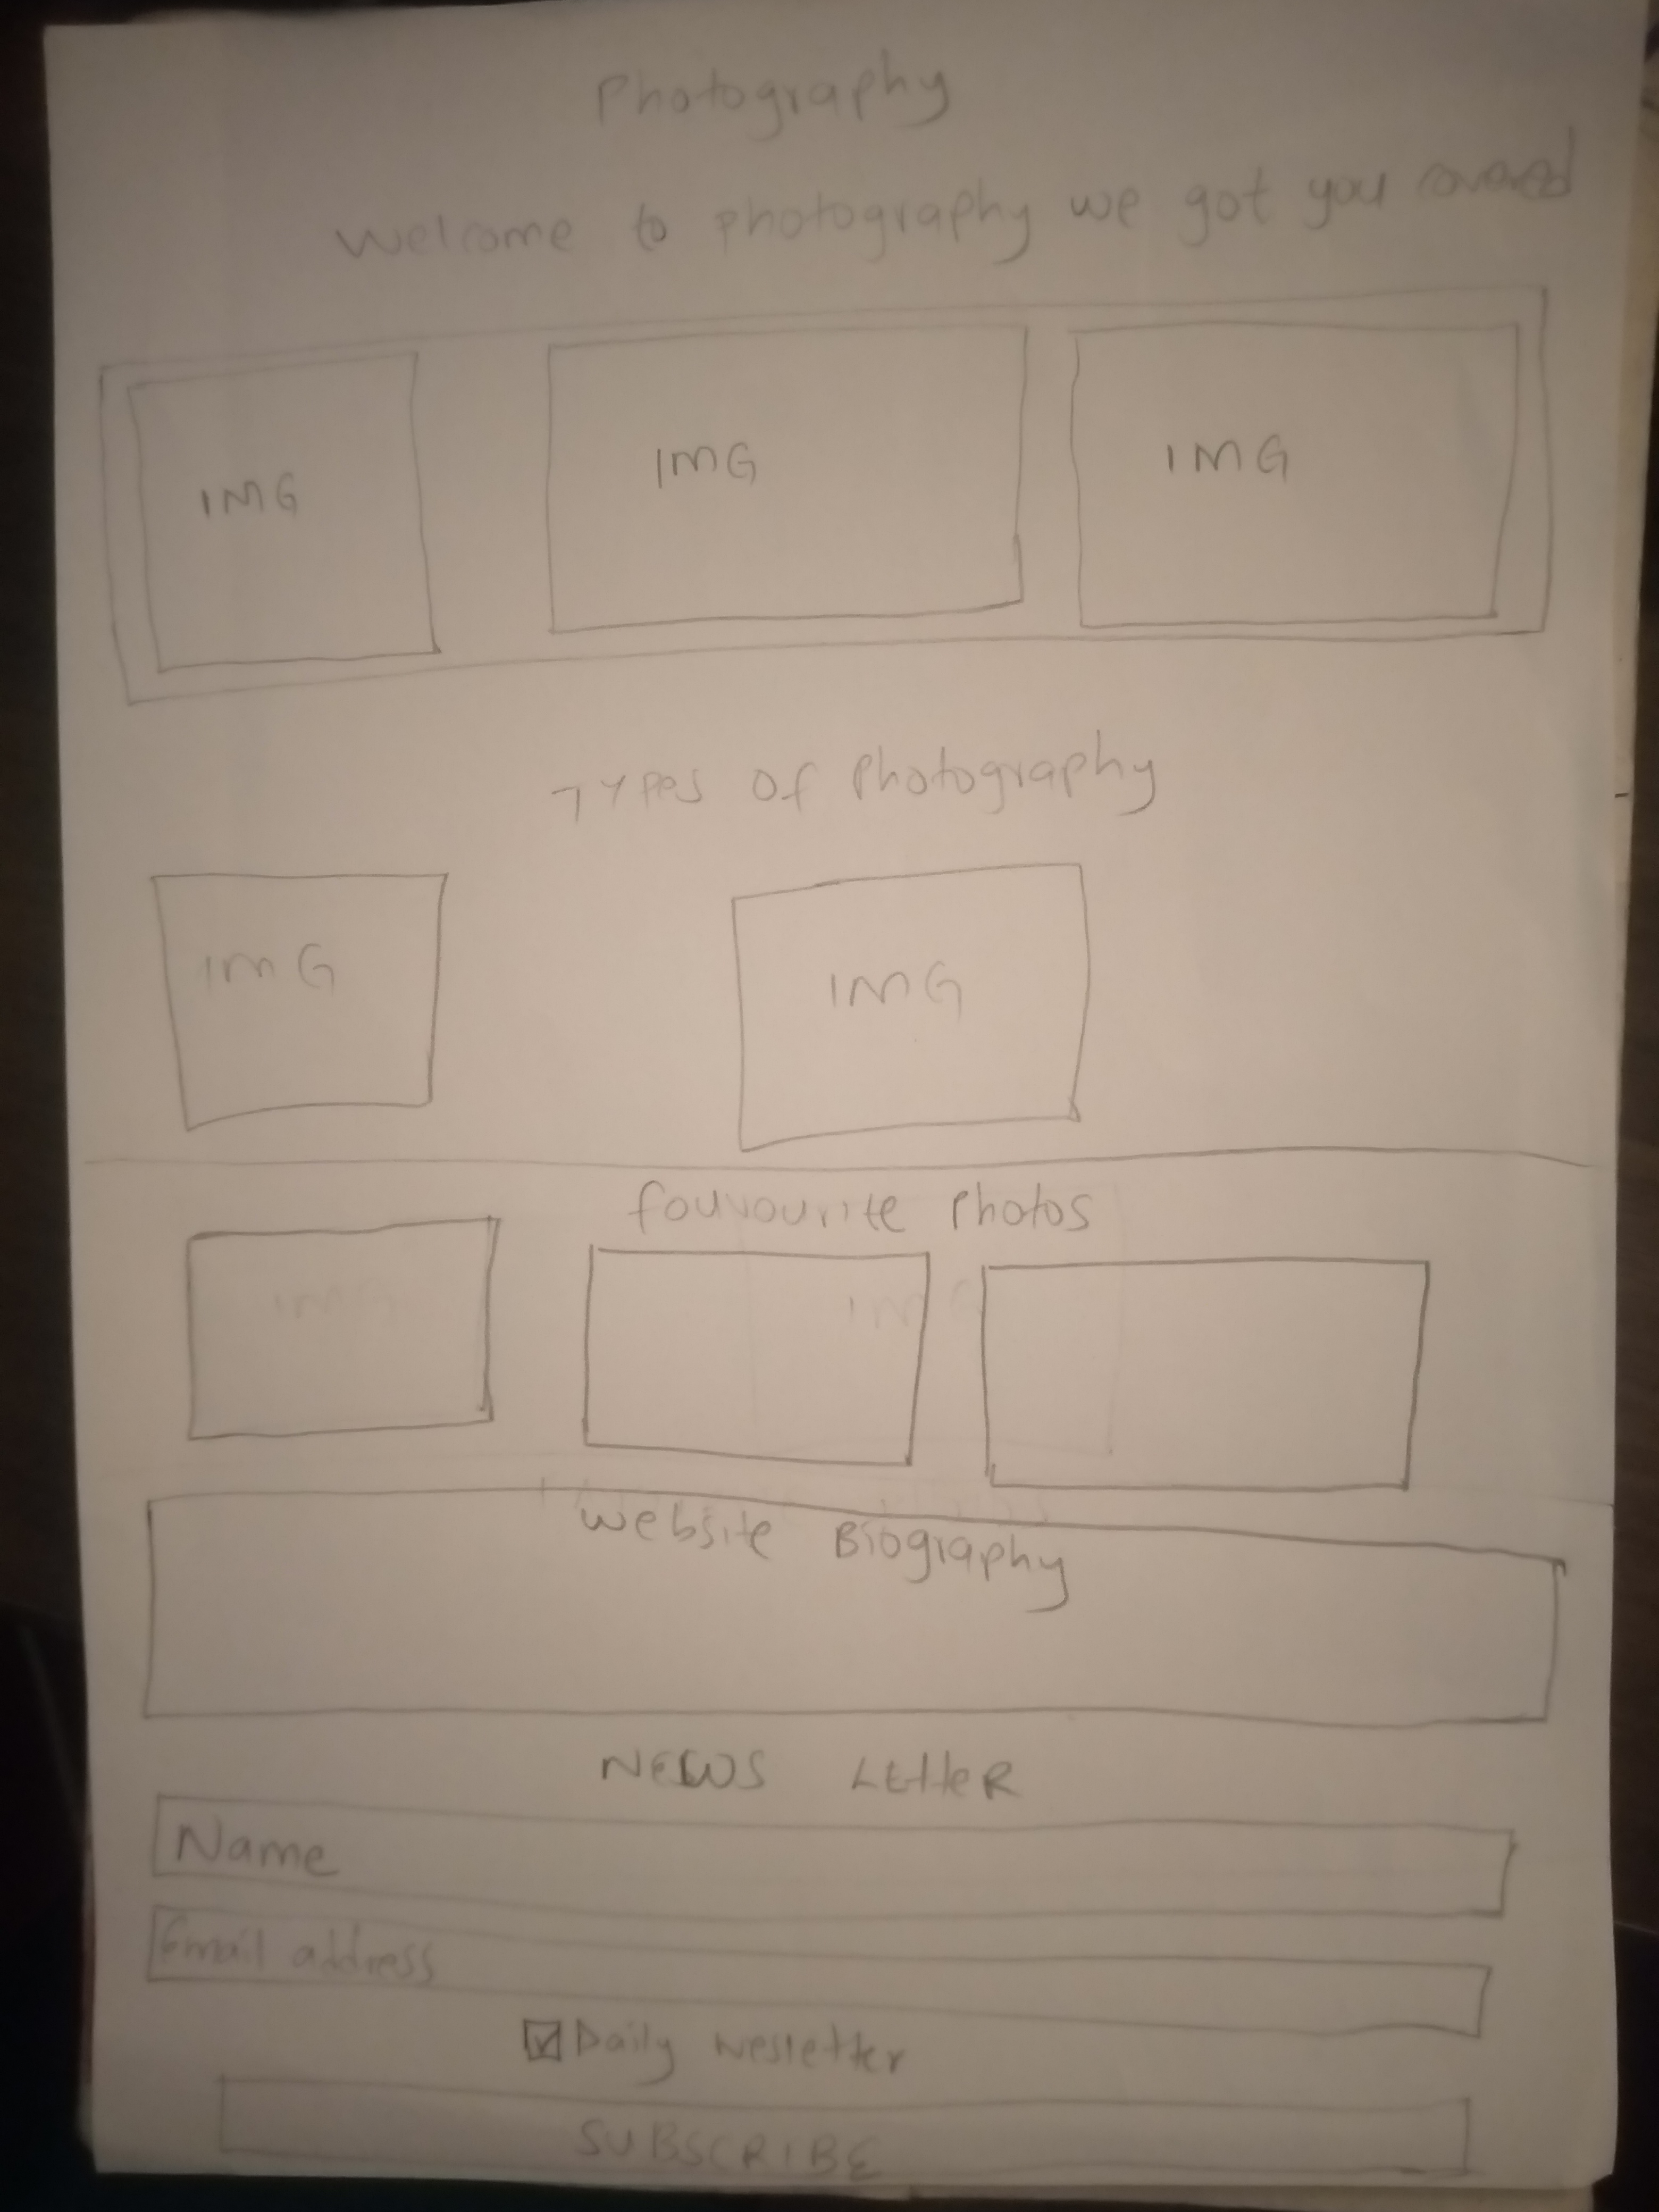 Photography
Welcome to photography we got you covered
IMG IMG IMG
Types of Photography
IMG IMG
fouvourite Photos
IMG IMG
Website Biography
NEWS LEtteR
Name
Email address
Daily Nesletter
SUBSCRIBE